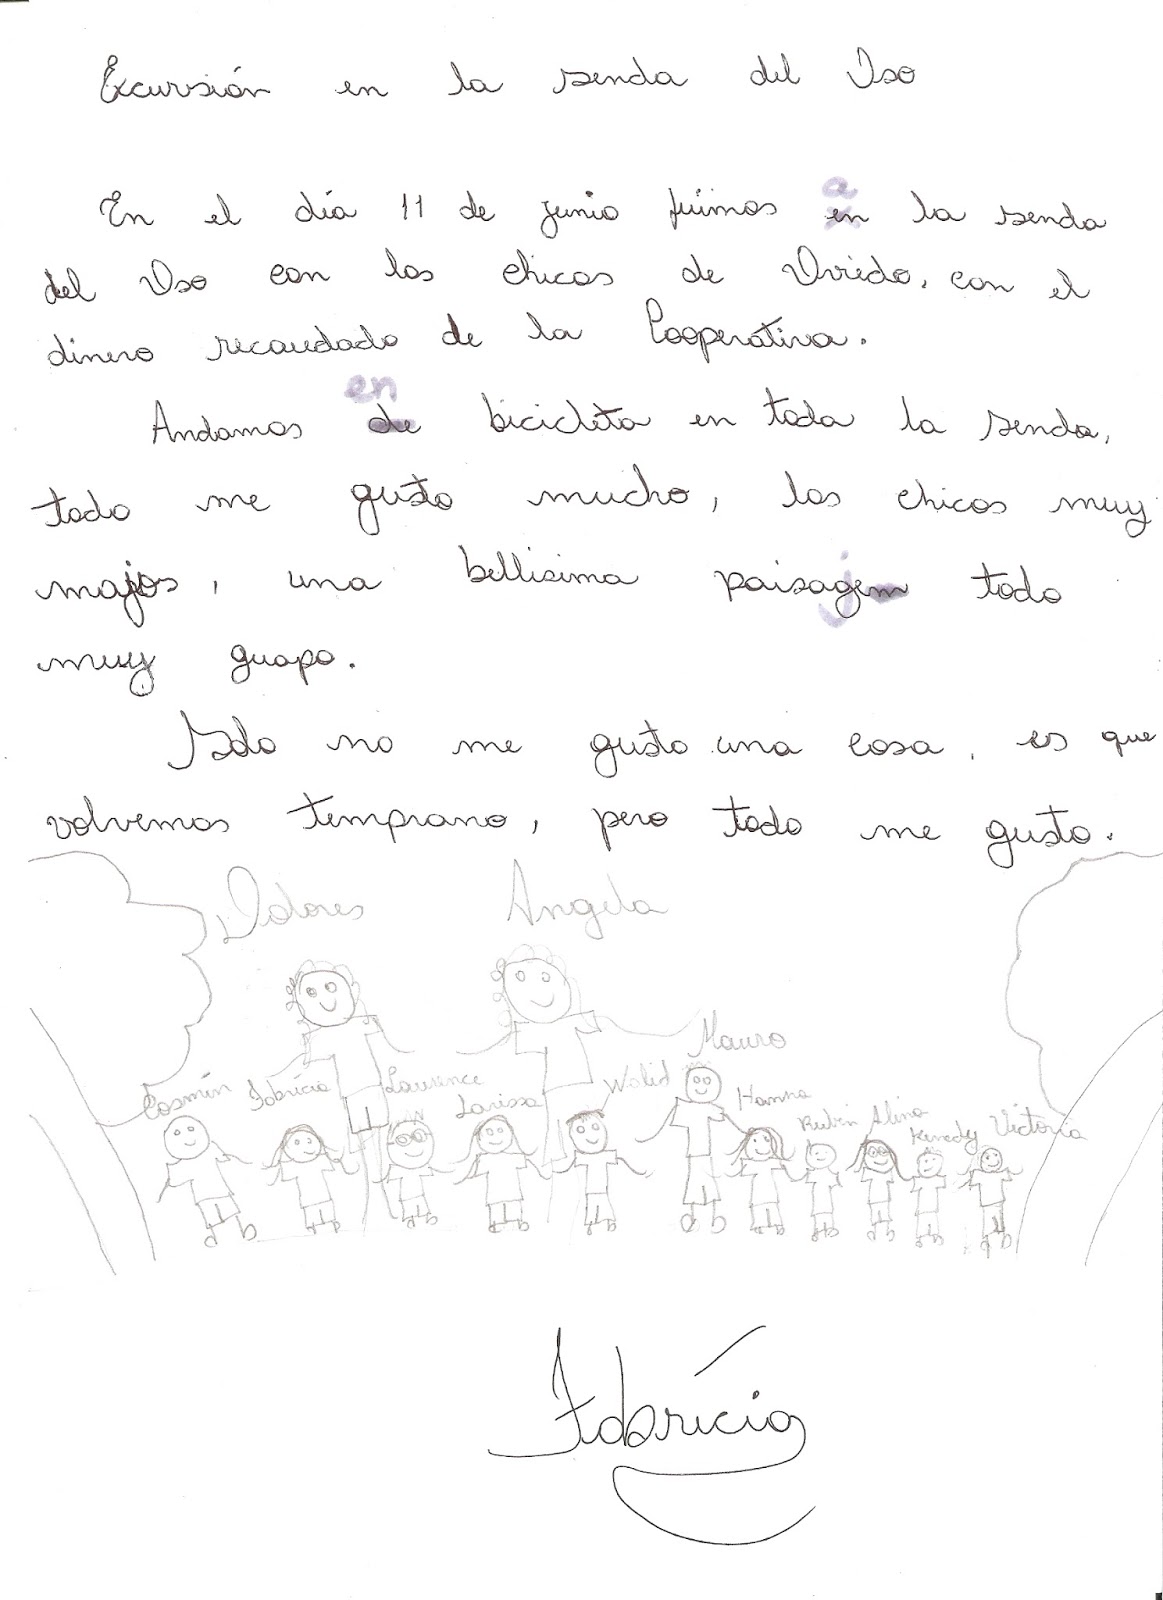 Excursión en la senda del Oso
a
En el día 11 de junio fuimos en la senda
del Oso con los chicos de Oviedo, con el
dinero recaudado de la Cooperativa.
en
Andamos de bicicleta en toda la senda,
todo me gusto mucho, los chicos muy
majos, una bellisima paisagem todo
j
muy guapo.
Solo no me gusto una cosa, es que
volvemos temprano, pero todo me gusto.
Dolores Angela
Mauro
Cosmín Fabrícia Laurence Larissa Walid Hamna
Rubén Alina Kenedy Victoria
Fabrícia